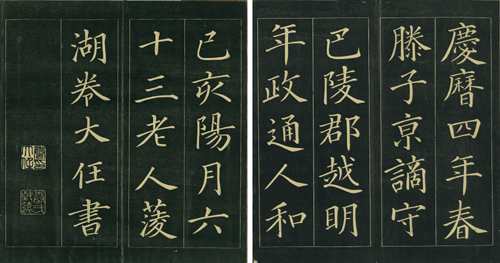 慶曆四年春
滕子亰謫守
巴陵郡越明
年政通人和
己亥陽月六
十三老人蓤
湖卷大任書